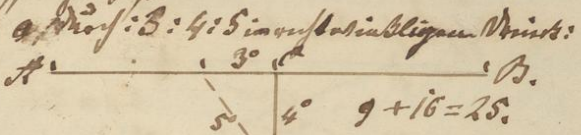 a, Durch: 3:4:5 im rechtwinkligen Dreieck:
A 3° C B.
5° 4° 9 + 16 = 25.